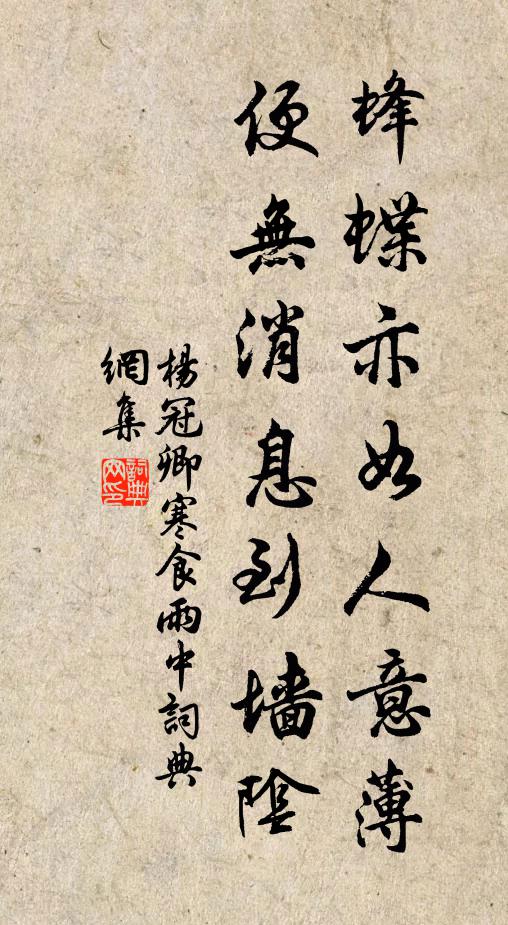 蜂蝶亦如人意薄
便無消息到墻陰
楊冠卿寒食雨中詞典
網集
詞典網印